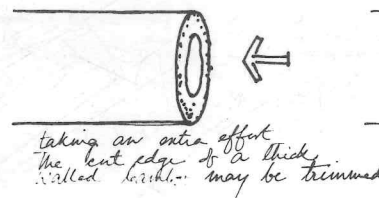 taking an extra effort
The cut edge of a thick
walled may be trimmed